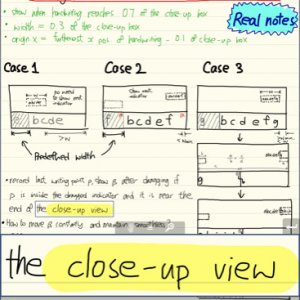 • show when handwriting reaches 0.7 of the close-up box
• width = 0.3 of the close-up box
• origin x = furthest x pos of handwriting - 0.1 of close-up box
Real notes
Case 1
Case 2
Case 3
no need to show next indicator
bcde
>w
Predefined width
f bcdef
g bcdefg
• record last writing point p, show after dragging if
p is inside the dragged indicator and it is near the
end of the close-up view
• How to move & continue and maintain smoothness?
the close-up view